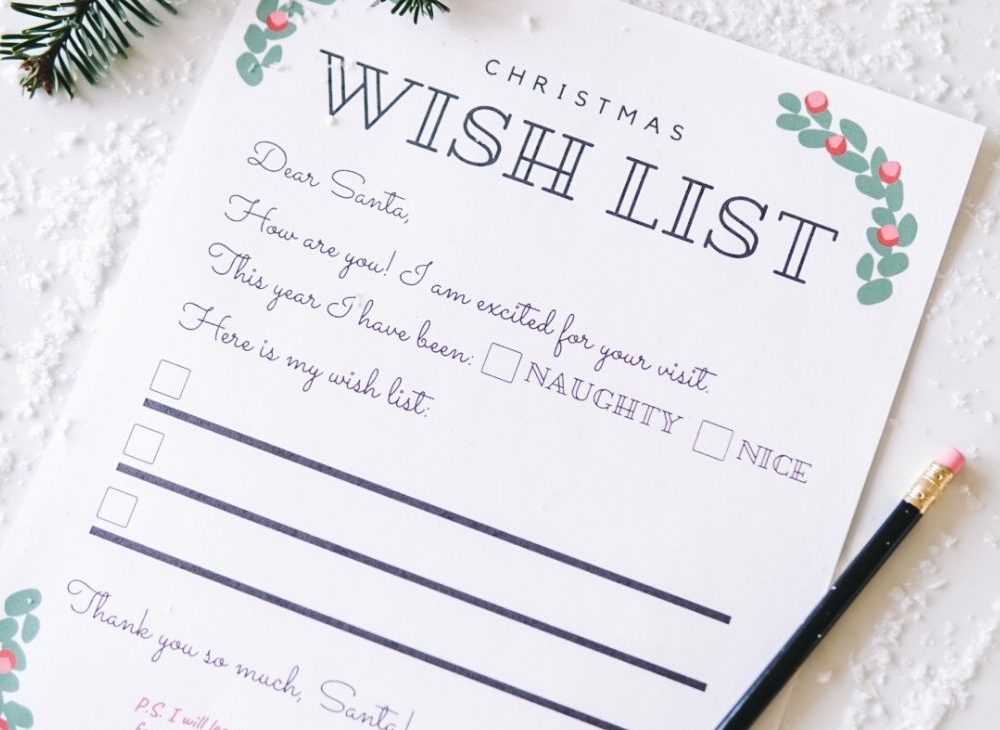 CHRISTMAS
WISH LIST
Dear Santa,
How are you! I am excited for your visit.
This year I have been: NAUGHTY NICE
Here is my wish list:
Thank you so much, Santa!
P.S. I will